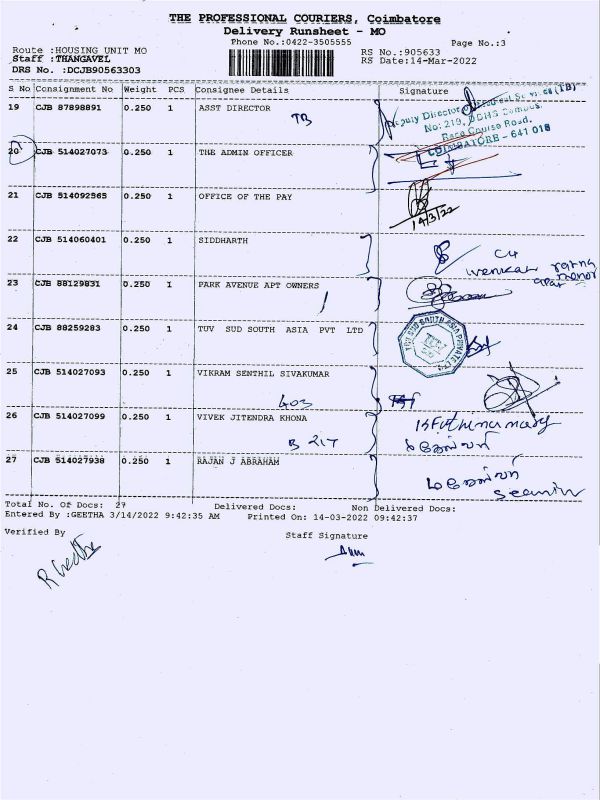 THE PROFESSIONAL COURIERS, Coimbatore
Delivery Runsheet - MO
Phone No.:0422-3505555
Page No.:3
Route :HOUSING UNIT MO
RS No.:905633
Staff :THANGAVEL
RS Date:14-Mar-2022
DRS No. :DCJB90563303
S No Consignment No Weight PCS Consignee Details Signature
19 CJB 87898891 0.250 1 ASST DIRECTOR
TB
Deputy Director
No: 219, DDHS Campus,
Race Course Road,
COIMBATORE - 641 018
20 CJB 514027073 0.250 1 THE ADMIN OFFICER
21 CJB 514092565 0.250 1 OFFICE OF THE PAY
14/3/22
22 CJB 514060401 0.250 1 SIDDHARTH
23 CJB 88129831 0.250 1 PARK AVENUE APT OWNERS
24 CJB 88259283 0.250 1 TUV SUD SOUTH ASIA PVT LTD
TUV SUD SOUTH ASIA PRIVATE LTD
25 CJB 514027093 0.250 1 VIKRAM SENTHIL SIVAKUMAR
403
26 CJB 514027099 0.250 1 VIVEK JITENDRA KHONA
B 217
27 CJB 514027938 0.250 1 RAJAN J ABRAHAM
Total No. Of Docs: 27 Delivered Docs: Non Delivered Docs:
Entered By :GEETHA 3/14/2022 9:42:35 AM Printed On: 14-03-2022 09:42:37
Verified By Staff Signature